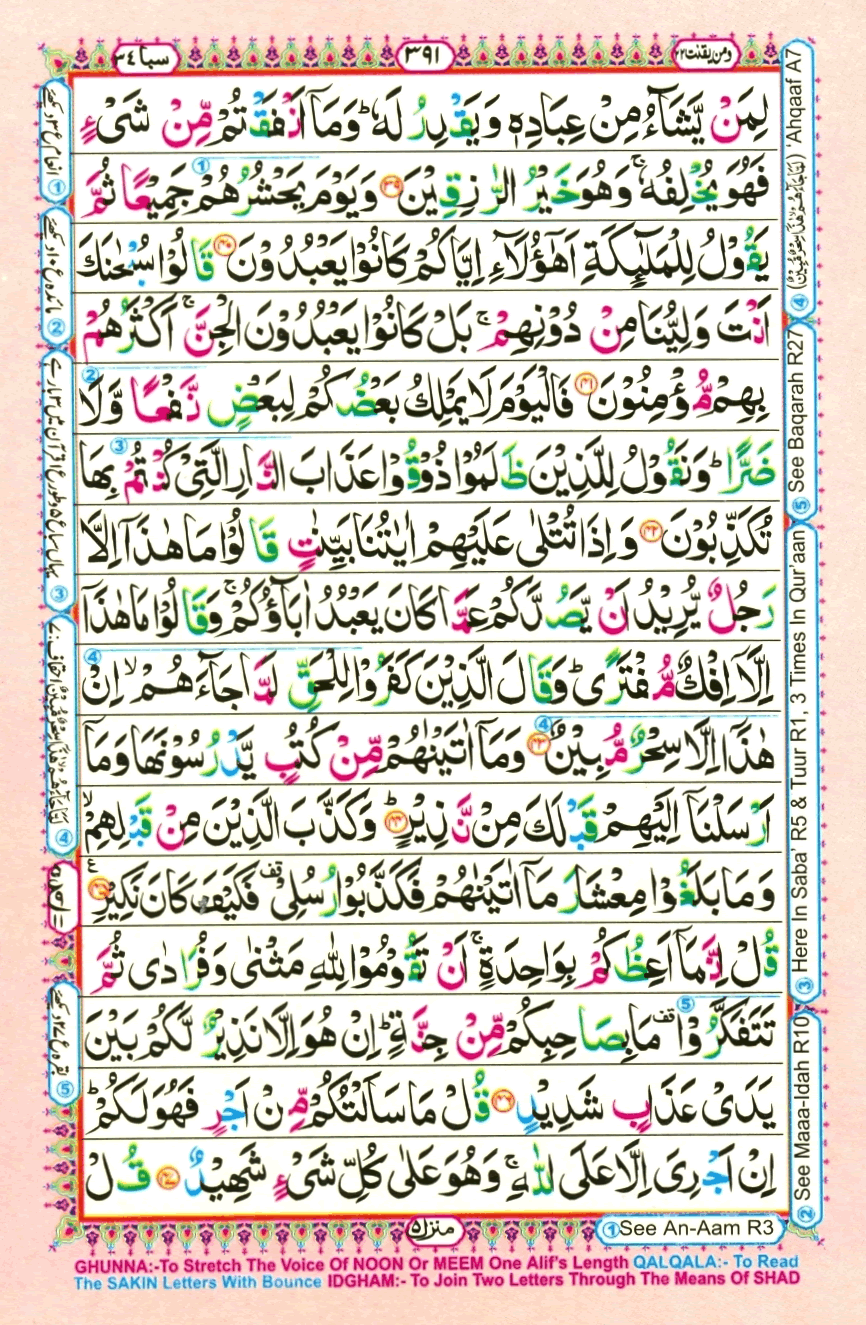 سبا ٣٤
٣٩١
ومن يقنت ٢٢
لِمَنْ يَّشَآءُ مِنْ عِبَادِهٖ وَيَقْدِرُ لَهٗ ؕ وَمَاۤ اَنْفَقْتُمْ مِّنْ شَیْءٍ
فَهُوَ یُخْلِفُهٗ ۚ وَهُوَ خَیْرُ الرّٰزِقِیْنَ ﴿۳۹﴾ وَیَوْمَ یَحْشُرُهُمْ جَمِیْعًا ثُمَّ
یَقُوْلُ لِلْمَلٰٓئِكَةِ اَهٰۤؤُلَآءِ اِیَّاكُمْ كَانُوْا یَعْبُدُوْنَ ﴿۴۰﴾ قَالُوْا سُبْحٰنَكَ
اَنْتَ وَلِیُّنَا مِنْ دُوْنِهِمْ ۚ بَلْ كَانُوْا یَعْبُدُوْنَ الْجِنَّ ۚ اَكْثَرُهُمْ
بِهِمْ مُّؤْمِنُوْنَ ﴿۴۱﴾ فَالْیَوْمَ لَا یَمْلِكُ بَعْضُكُمْ لِبَعْضٍ نَّفْعًا وَّلَا
ضَرًّا ؕ وَنَقُوْلُ لِلَّذِیْنَ ظَلَمُوْا ذُوْقُوْا عَذَابَ النَّارِ الَّتِیْ كُنْتُمْ بِهَا
تُكَذِّبُوْنَ ﴿۴۲﴾ وَاِذَا تُتْلٰی عَلَیْهِمْ اٰیٰتُنَا بَیِّنٰتٍ قَالُوْا مَا هٰذَاۤ اِلَّا
رَجُلٌ یُّرِیْدُ اَنْ یَّصُدَّكُمْ عَمَّا كَانَ یَعْبُدُ اٰبَآؤُكُمْ ۚ وَقَالُوْا مَا هٰذَاۤ
اِلَّاۤ اِفْكٌ مُّفْتَرًی ؕ وَقَالَ الَّذِیْنَ كَفَرُوْا لِلْحَقِّ لَمَّا جَآءَهُمْ ۙ اِنْ
هٰذَاۤ اِلَّا سِحْرٌ مُّبِیْنٌ ﴿۴۳﴾ وَمَاۤ اٰتَیْنٰهُمْ مِّنْ كُتُبٍ یَّدْرُسُوْنَهَا وَمَاۤ
اَرْسَلْنَاۤ اِلَیْهِمْ قَبْلَكَ مِنْ نَّذِیْرٍ ﴿۴۴﴾ؕ وَكَذَّبَ الَّذِیْنَ مِنْ قَبْلِهِمْ ۙ
وَمَا بَلَغُوْا مِعْشَارَ مَاۤ اٰتَیْنٰهُمْ فَكَذَّبُوْا رُسُلِیْ ۫ فَكَیْفَ كَانَ نَكِیْرِ ﴿۴۵﴾
قُلْ اِنَّمَاۤ اَعِظُكُمْ بِوَاحِدَةٍ ۚ اَنْ تَقُوْمُوْا لِلّٰهِ مَثْنٰی وَفُرَادٰی ثُمَّ
تَتَفَكَّرُوْا ۫ مَا بِصَاحِبِكُمْ مِّنْ جِنَّةٍ ؕ اِنْ هُوَ اِلَّا نَذِیْرٌ لَّكُمْ بَیْنَ
یَدَیْ عَذَابٍ شَدِیْدٍ ﴿۴۶﴾ قُلْ مَا سَاَلْتُكُمْ مِّنْ اَجْرٍ فَهُوَ لَكُمْ ؕ
اِنْ اَجْرِیَ اِلَّا عَلَی اللّٰهِ ۚ وَهُوَ عَلٰی كُلِّ شَیْءٍ شَهِیْدٌ ﴿۴۷﴾ قُلْ
④ (لَمَّا جَآءَهُمْ هٰذَا سِحْرٌ مُّبِیْنٌ) 'Ahqaaf A7
⑤ See Baqarah R27
③ Here In Saba' R5 & Tuur R1, 3 Times In Qur'aan
② See Maaa-Idah R10
منزل ۵
① See An-Aam R3
GHUNNA:-To Stretch The Voice Of NOON Or MEEM One Alif's Length QALQALA:- To Read
The SAKIN Letters With Bounce IDGHAM:- To Join Two Letters Through The Means Of SHAD